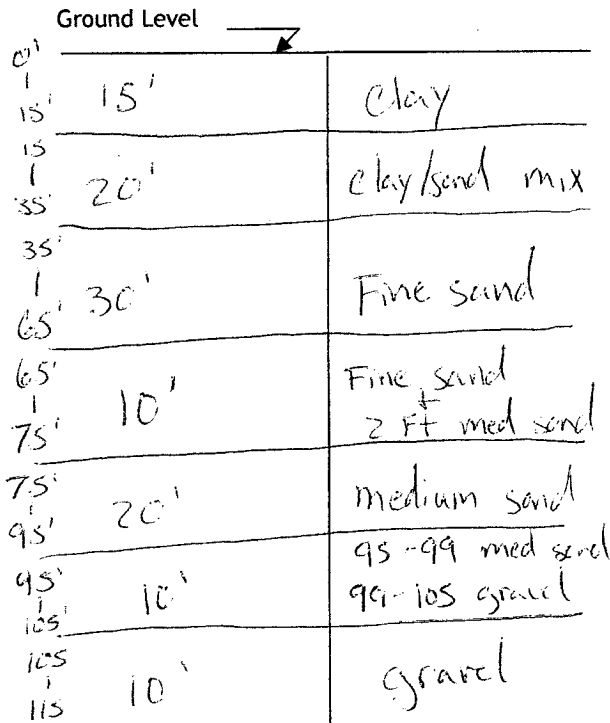 Ground Level
0'
|
15'
15'
Clay
15
|
35'
20'
clay/sand mix
35'
|
65'
30'
Fine sand
65'
|
75'
10'
Fine sand
+
2 Ft med sand
75'
|
95'
20'
medium sand
95'
|
105'
10'
95-99 med sand
99-105 gravel
105
|
115
10'
gravel